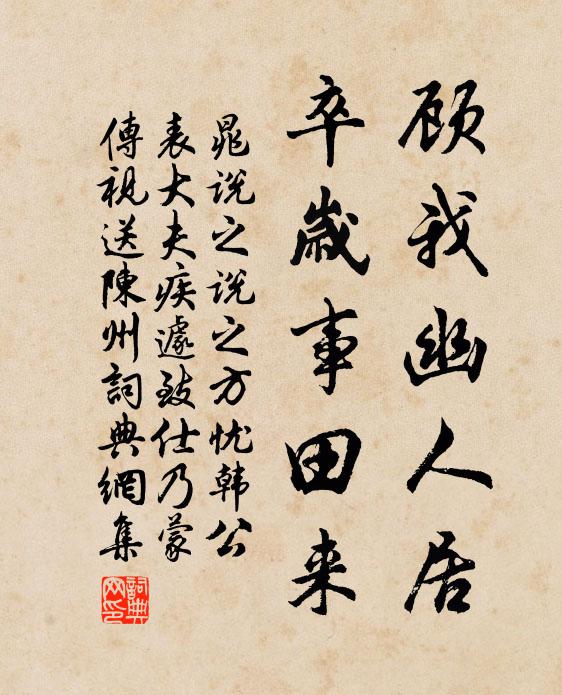 顾我幽人居
卒歲事田来
晁说之说之方忧韩公
表大夫疾遽致仕乃蒙
傳视送陳州詞典網集
詞典网印